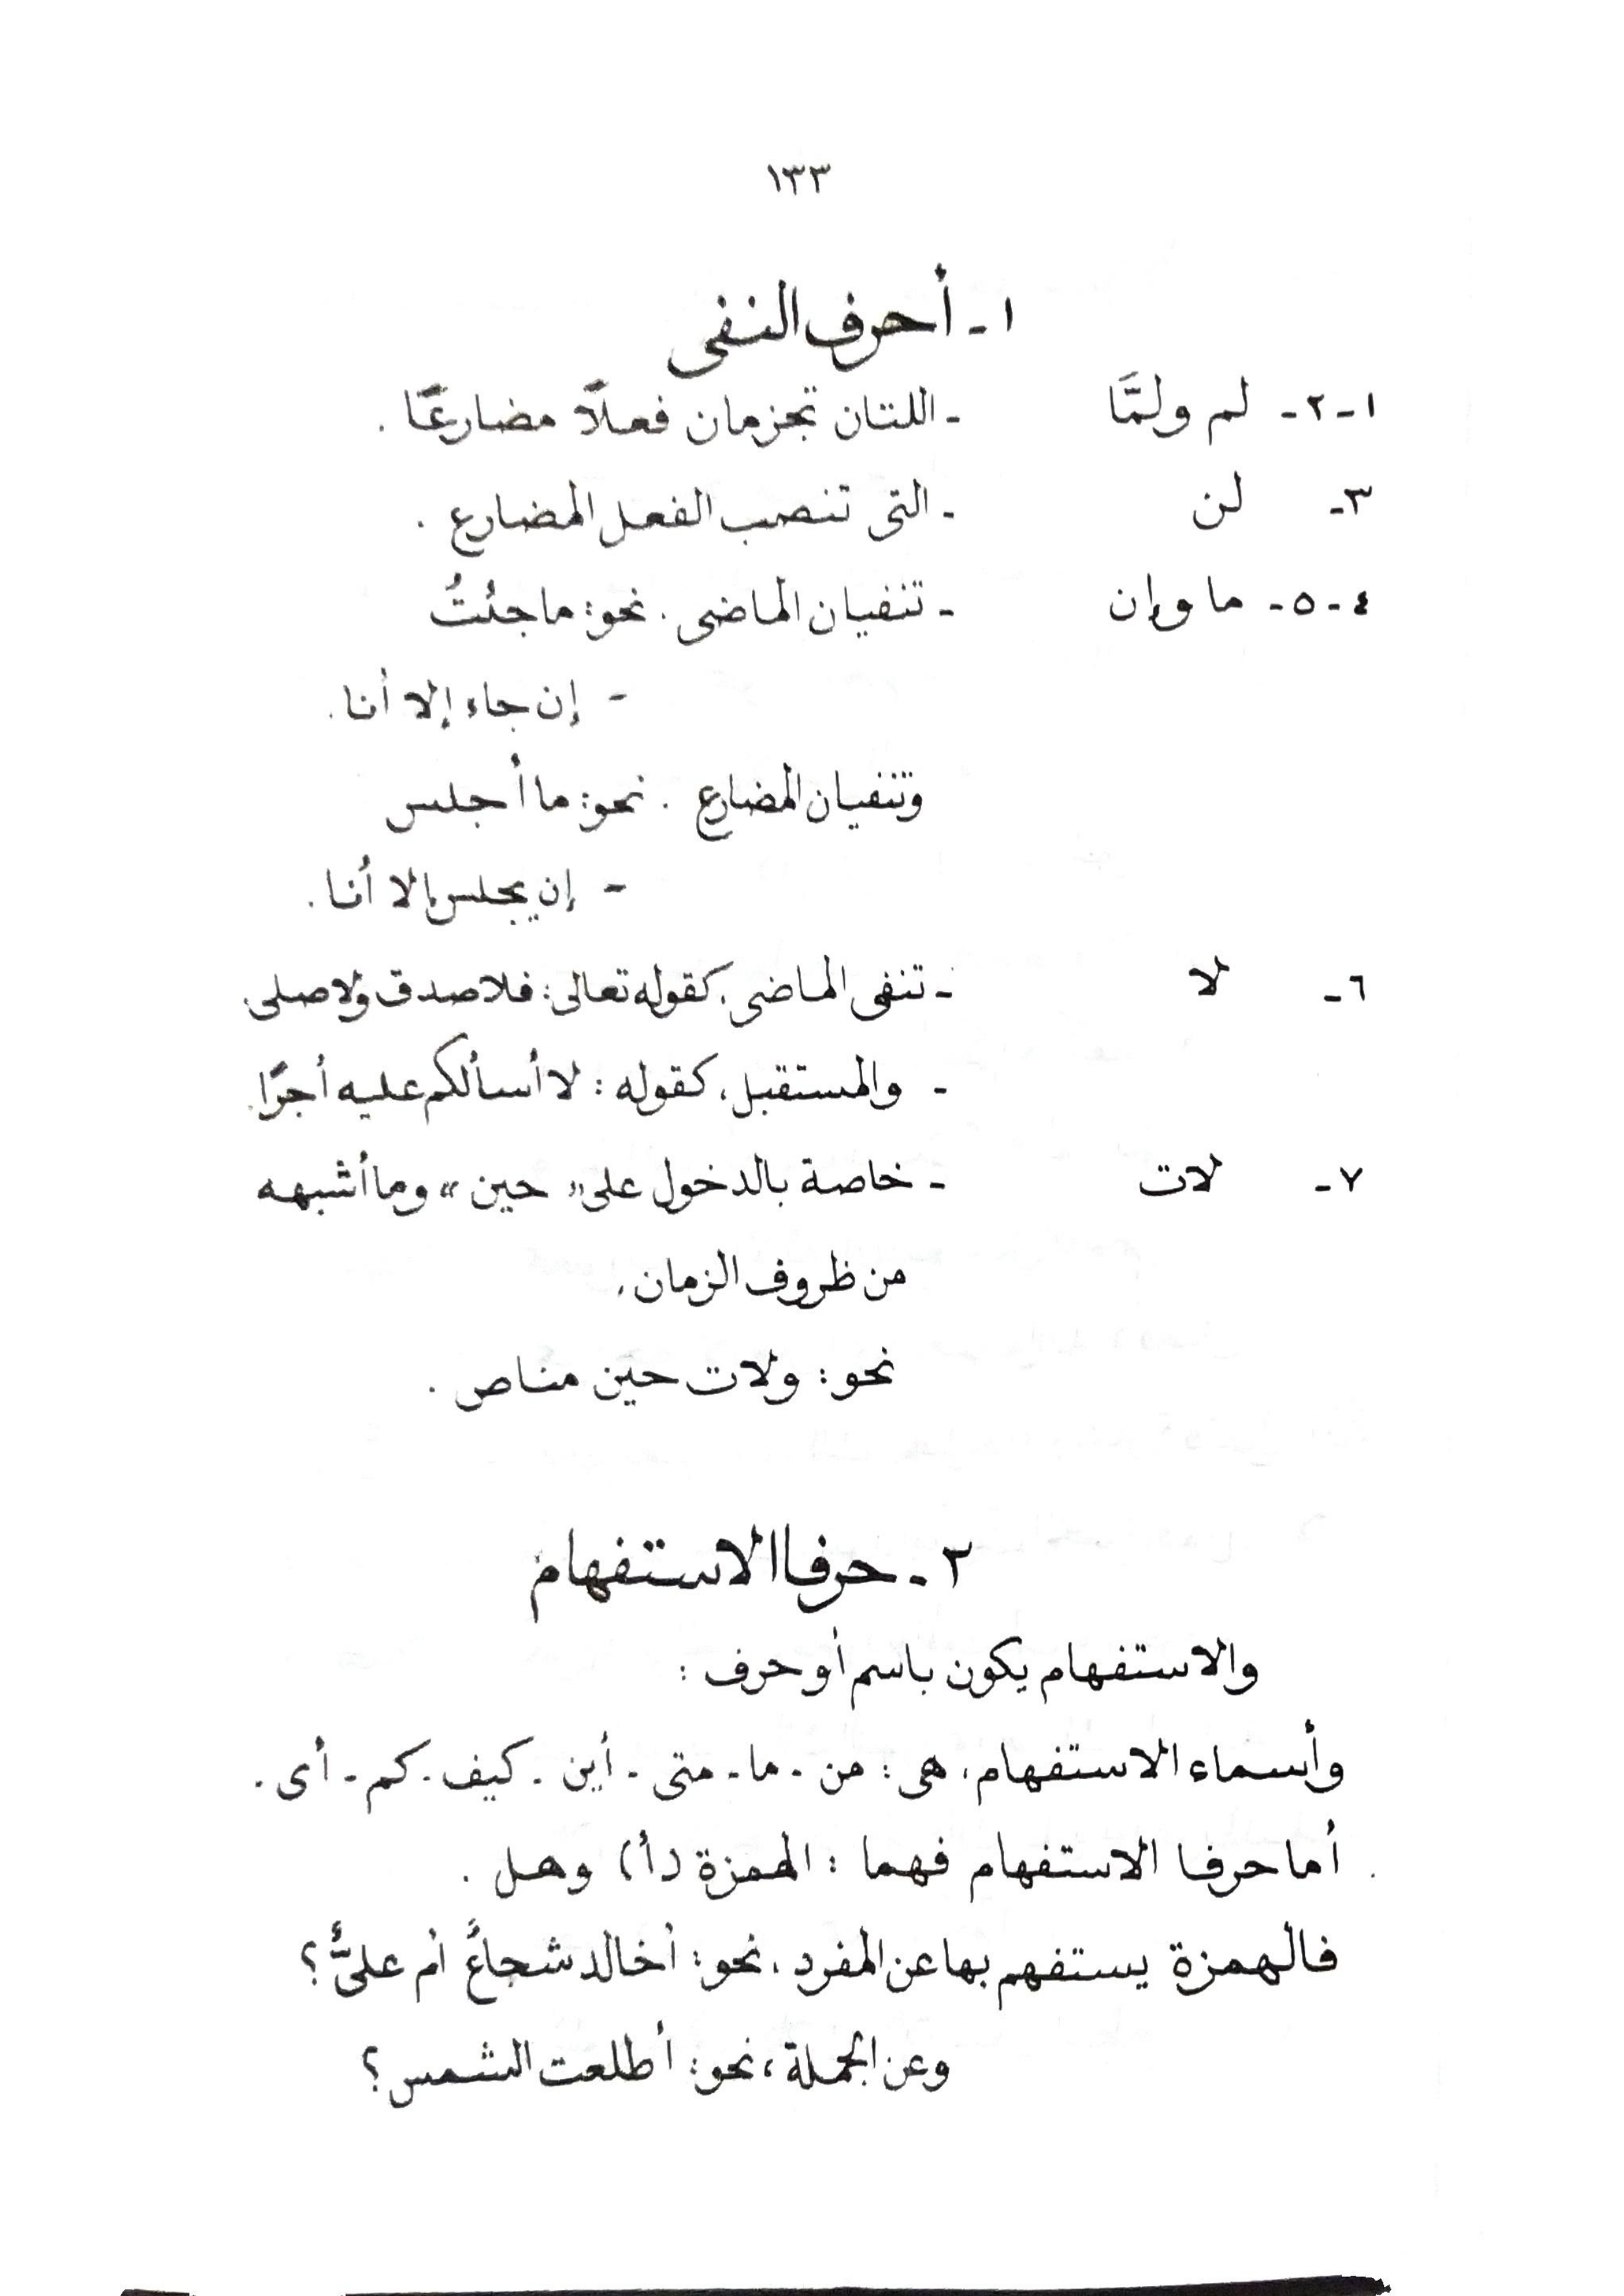 ١٣٣
١ - أحرف النفى
١-٢- لم ولمَّا - اللتان تجزمان فعلاً مضارعًا .
٣- لن - التى تنصب الفعل المضارع .
٤-٥- ما وإن - تنفيان الماضى . نحو: ما جئتُ
- إن جاء إلا أنا .
وتنفيان المضارع . نحو: ما أجلس
- إن يجلس إلا أنا .
٦- لا - تنفى الماضى، كقوله تعالى: فلا صدق ولا صلى.
- والمستقبل، كقوله : لا أسألكم عليه أجرًا.
٧- لات - خاصة بالدخول على « حين » وما أشبهه
من ظروف الزمان .
نحو : ولات حين مناص .
٢ - حرفا الاستفهام
والاستفهام يكون باسم أو حرف :
وأسماء الاستفهام، هى : من - ما - متى - أين - كيف - كم - أى .
أما حرفا الاستفهام فهما : الهمزة (أ) وهل .
فالهمزة يستفهم بها عن المفرد ، نحو: أخالد شجاعٌ أم علىٌّ ؟
وعن الجملة ، نحو: أطلعت الشمس ؟